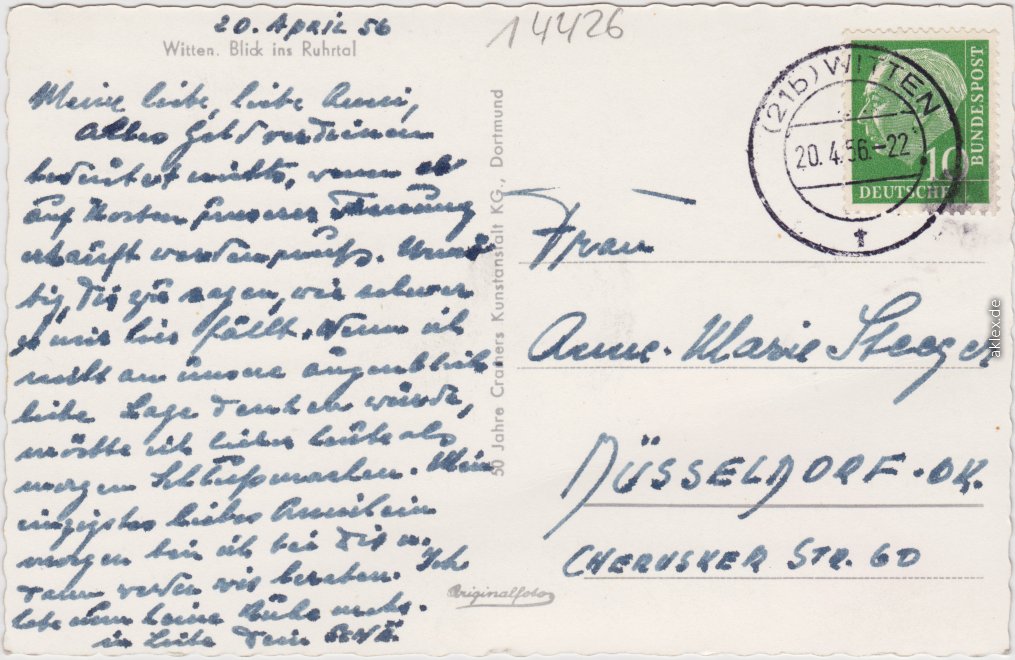 20. April 56
14426
Witten. Blick ins Ruhrtal
Meine liebe, liebe Anni,
alles Geldverdienen
bedeutet nichts, wenn es
auf Kosten unserer Trennung
erkauft werden muß. Unnö
tig, Dir zu sagen, wie schwer
es mir hier fällt. Wenn ich
nicht an unsere augenblick
liche Lage denken würde,
möchte ich lieber heute als
morgen Schluß machen. Mein
einzigstes liebes Annilein
morgen bin ich bei Dir u.
dann werden wir beraten. Ich
habe nun keine Ruhe mehr.
in Liebe Dein
50 Jahre Cramers Kunstanstalt KG., Dortmund
Originalfoto
(21b) WITTEN
20. 4. 56.-22
DEUTSCHE
BUNDESPOST
10
Frau
Anne-Marie Steeger
DÜSSELDORF-OK.
CHERUSKER STR. 60
aklex.de